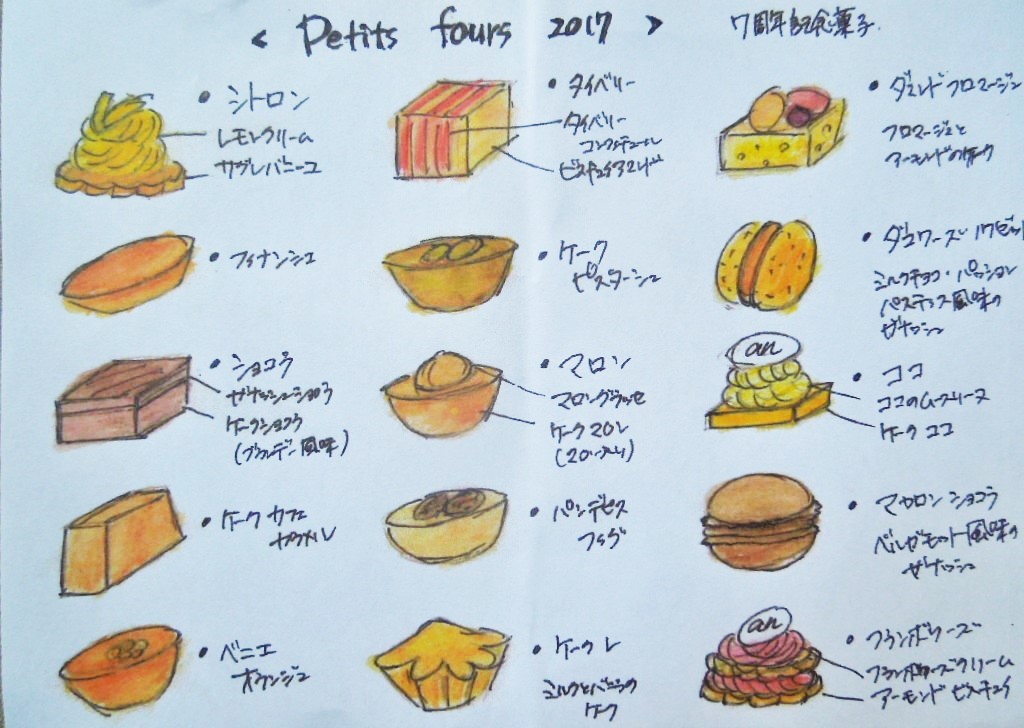 < Petits fours 2017 >
7周年記念菓子
• シトロン
レモンクリーム
サブレバニーユ
• タイベリー
タイベリー
コンフィチュール
ビスキュイアマンド
• ダマンドフロマージュ
フロマージュと
アーモンドのケーク
• フィナンシェ
• ケーク
ピスターシュ
• ダコワーズ ノワゼット
ミルクチョコ・パッション
パスティス風味の
ガナッシュ
• ショコラ
ガナッシュショコラ
ケークショコラ
(ブランデー風味)
• マロン
マロングラッセ
ケークマロン
• ココ
ココのムースリーヌ
ケーク ココ
an
• ケーク カフェ
キャラメル
• パンデピス
フィグ
• マカロン ショコラ
ベルガモット風味の
ガナッシュ
• ベニエ
オランジュ
• ケーク レ
ミルクとバニラの
ケーク
• フランボワーズ
フランボワーズクリーム
アーモンド ビスキュイ
an